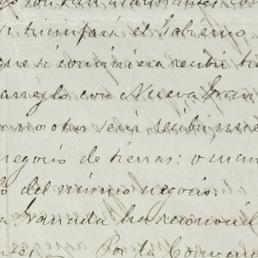 si triunfará el Gobierno
que si conviniera recibir tie
arreglo con Nueva Gran
nosotros será recibir nue
negocio de tierras: o man
o del mismo negocio.
a Granada ha reconocid
Por la Conven